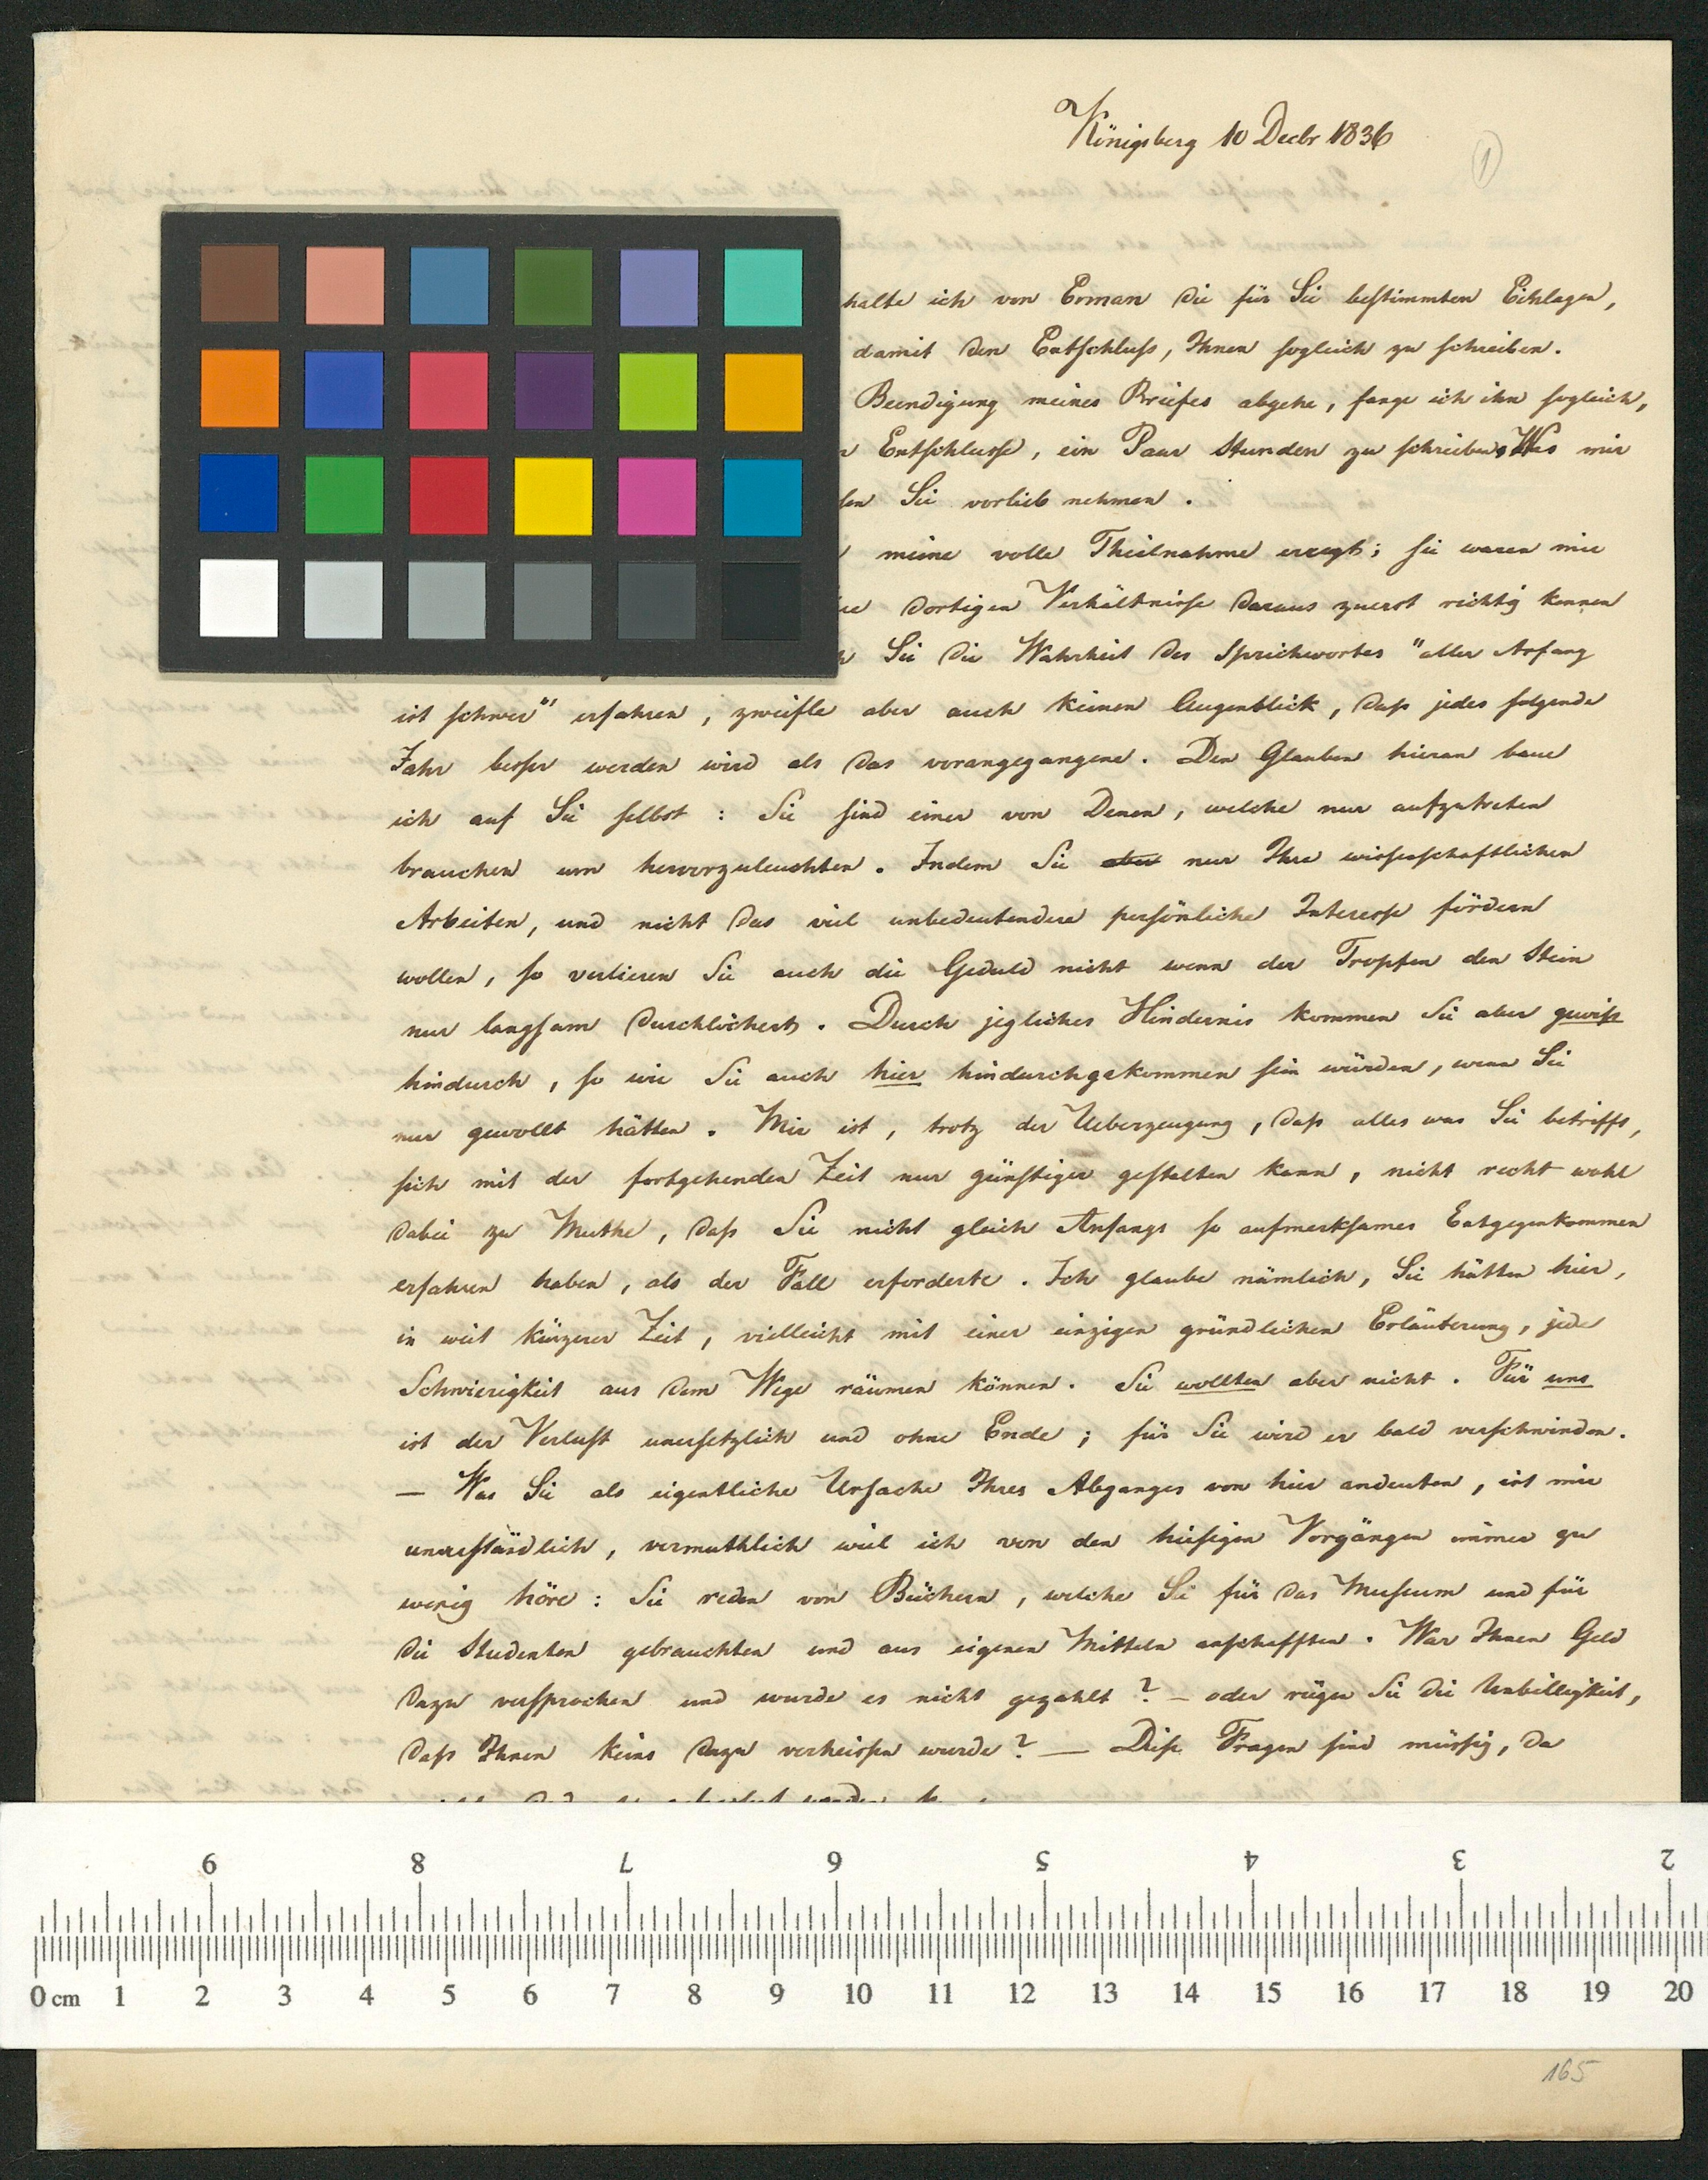 Königsberg 10 Decbr 1836
1
halte ich von Erman die für Sie bestimmten Einlagen,
damit den Entschluss, Ihnen sogleich zu schreiben.
Beendigung meines Briefes abgehe, fange ich ihn sogleich,
Entschlusse, ein Paar Stunden zu schreiben. Was mir
Sie vorlieb nehmen.
meine volle Theilnahme erregt; sie waren mir
dortigen Verhältnisse daraus zuerst richtig kennen
Sie die Wahrheit des Sprichwortes "aller Anfang
ist schwer" erfahren, zweifle aber auch keinen Augenblick, dass jedes folgende
Jahr besser werden wird als das vorangegangene. Den Glauben hieran baue
ich auf Sie selbst: Sie sind einer von Denen, welche nur aufzutreten
brauchen um hervorzuleuchten. Indem Sie aber nur Ihre wissenschaftlichen
Arbeiten, und nicht das viel unbedeutendere persönliche Interesse fördern
wollen, so verlieren Sie auch die Geduld nicht wenn der Tropfen den Stein
nur langsam durchlöchert. Durch jegliches Hindernis kommen Sie aber gewiss
hindurch, so wie Sie auch hier hindurchgekommen sein würden, wenn Sie
nur gewollt hätten. Mir ist, trotz der Ueberzeugung, dass alles was Sie betrifft,
sich mit der fortgehenden Zeit nur günstiger gestalten kann, nicht recht wohl
dabei zu Muthe, dass Sie nicht gleich Anfangs so aufmerksames Entgegenkommen
erfahren haben, als der Fall erforderte. Ich glaube nämlich, Sie hätten hier,
in weit kürzerer Zeit, vielleicht mit einer einzigen gründlichen Erläuterung, jede
Schwierigkeit aus dem Wege räumen können. Sie wollten aber nicht. Für uns
ist der Verlust unersetzlich und ohne Ende; für Sie wird er bald verschwinden.
— Was Sie als eigentliche Ursache Ihres Abganges von hier andeuten, ist mir
unverständlich, vermuthlich weil ich von den hiesigen Vorgängen immer zu
wenig höre: Sie reden von Büchern, welche Sie für das Museum und für
die Studenten gebrauchten und aus eigenen Mitteln anschafften. War Ihnen Geld
dazu versprochen und wurde es nicht gezahlt? — oder rügen Sie die Unbilligkeit,
dass Ihnen keins dazu verheissen wurde? — Diese Fragen sind müssig, da
9 8 7 6 5 4 3 2
0 cm 1 2 3 4 5 6 7 8 9 10 11 12 13 14 15 16 17 18 19 20
165